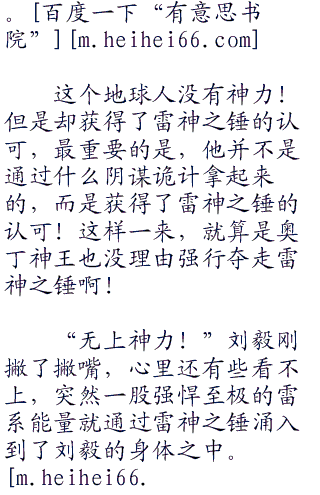 。[百度一下“有意思书
院”][m.heihei66.com]
这个地球人没有神力！
但是却获得了雷神之锤的认
可，最重要的是，他并不是
通过什么阴谋诡计拿起来
的，而是获得了雷神之锤的
认可！这样一来，就算是奥
丁神王也没理由强行夺走雷
神之锤啊！
“无上神力！”刘毅刚
撇了撇嘴，心里还有些看不
上，突然一股强悍至极的雷
系能量就通过雷神之锤涌入
到了刘毅的身体之中。
[m.heihei66.